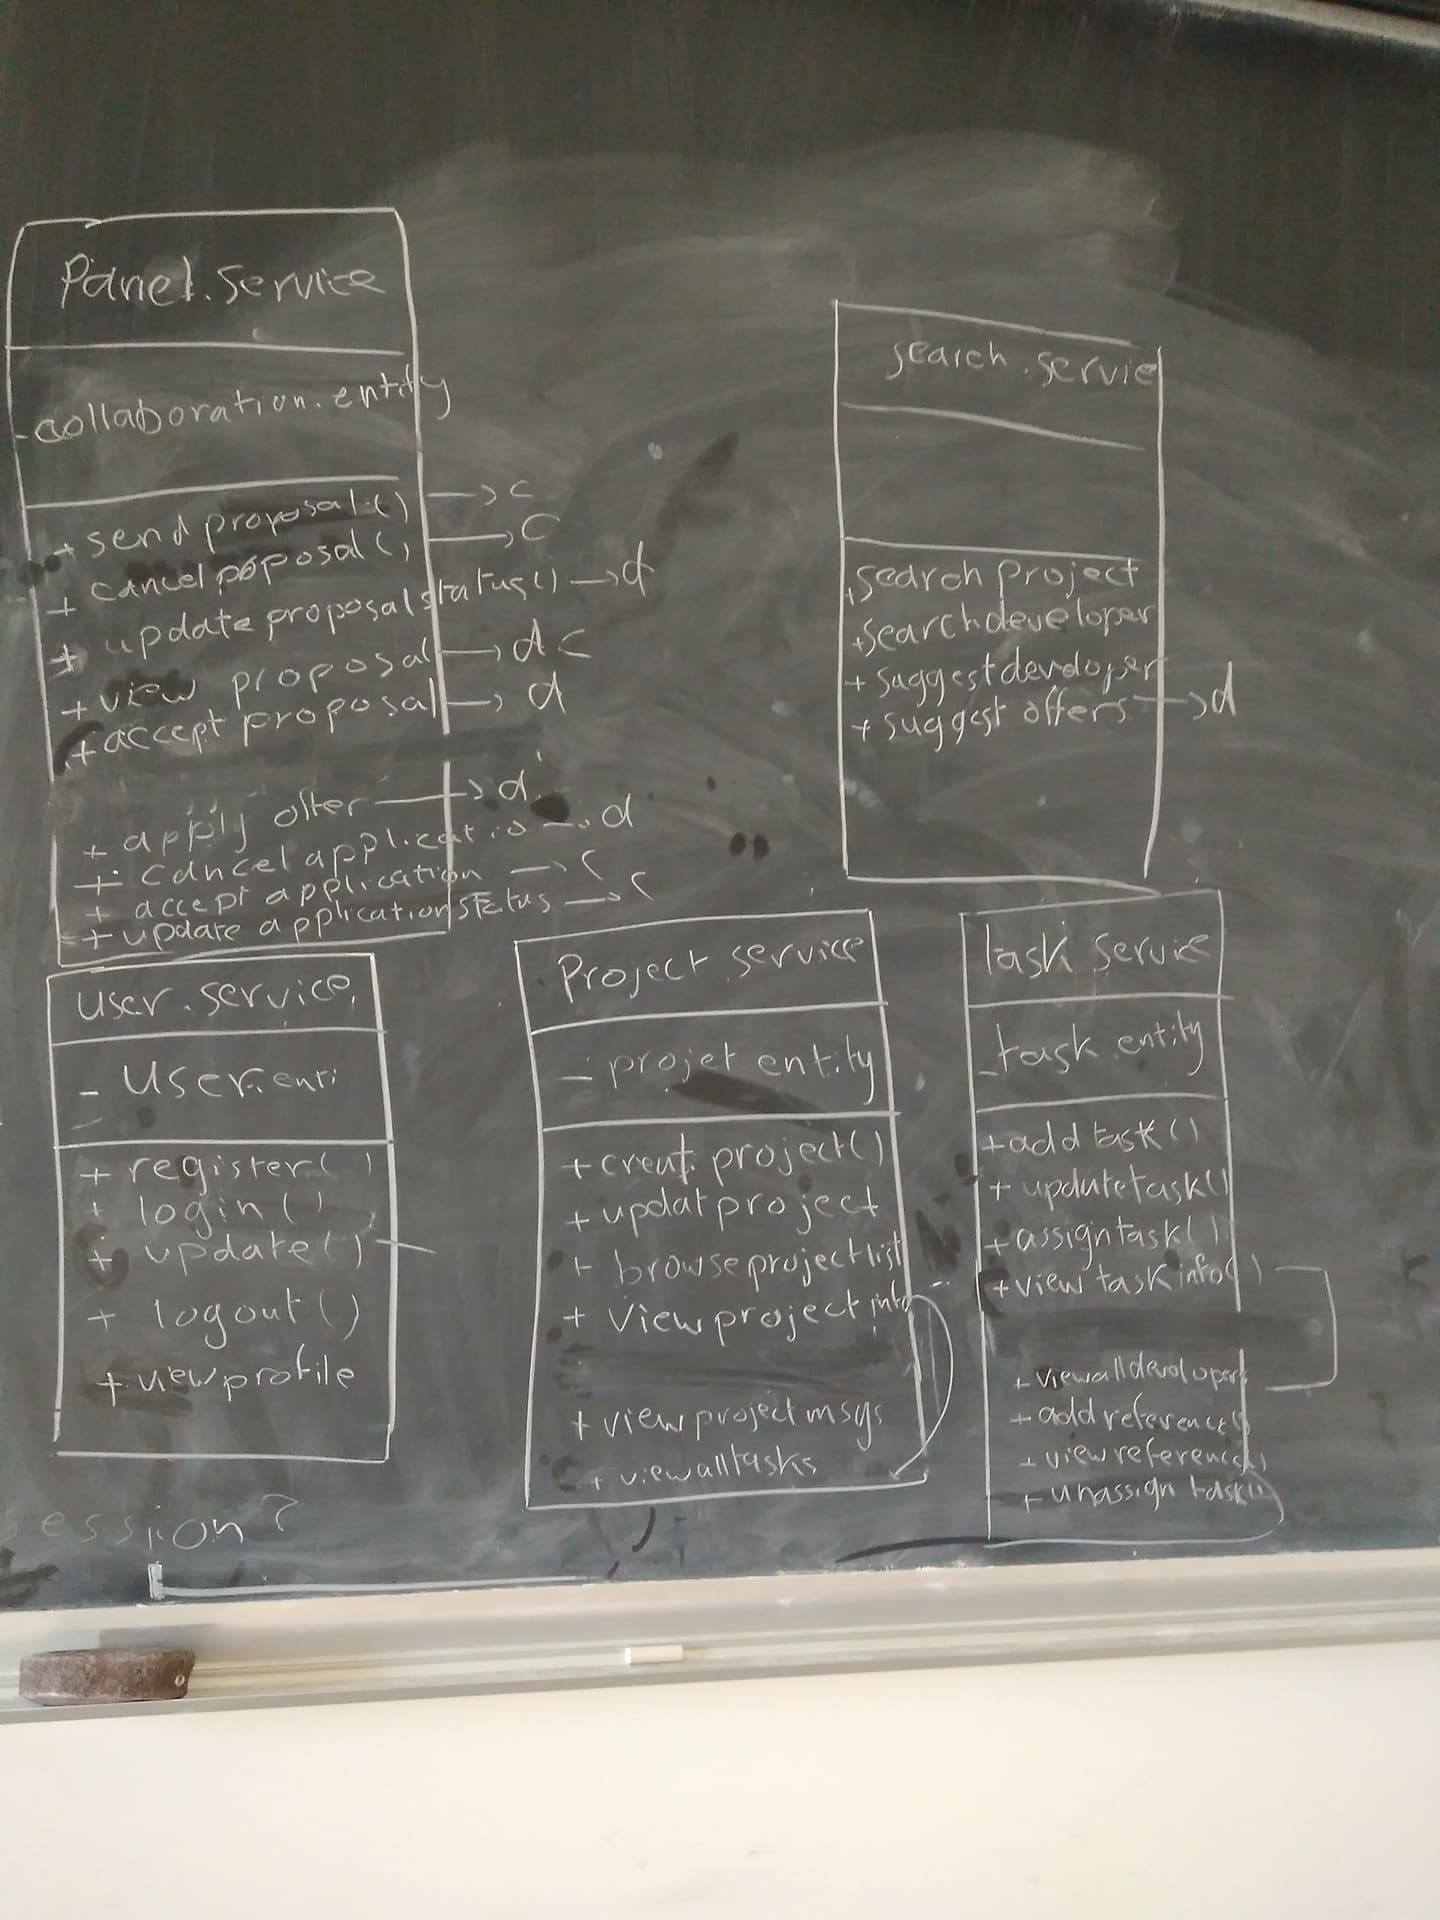 Panel.service
-collaboration.entity
+ send proposal() → c
+ cancel poposal() → C
+ update proposal status() → d
+ view proposal → d c
+ accept proposal → d
+ apply offer → d
+ cancel applicatio → d
+ accept application → c
+ update application status → c
search.servie
+ search project
+ searchdeveloper
+ suggestdeveloper
+ suggest offers → d
user.service
- user.enti
+ register()
+ login()
+ update()
+ logout()
+ viewprofile
Project.service
- projet.entity
+ creat project()
+ updatproject
+ browseprojectlist
+ viewprojectinfo
+ viewprojectmsgs
+ viewalltasks
task service
- task.entity
+ addtask()
+ updatetask()
+ assigntask()
+ view taskinfo()
+ viewalldevoloper
+ addreference()
+ viewreference()
+ unassign task()
ession?